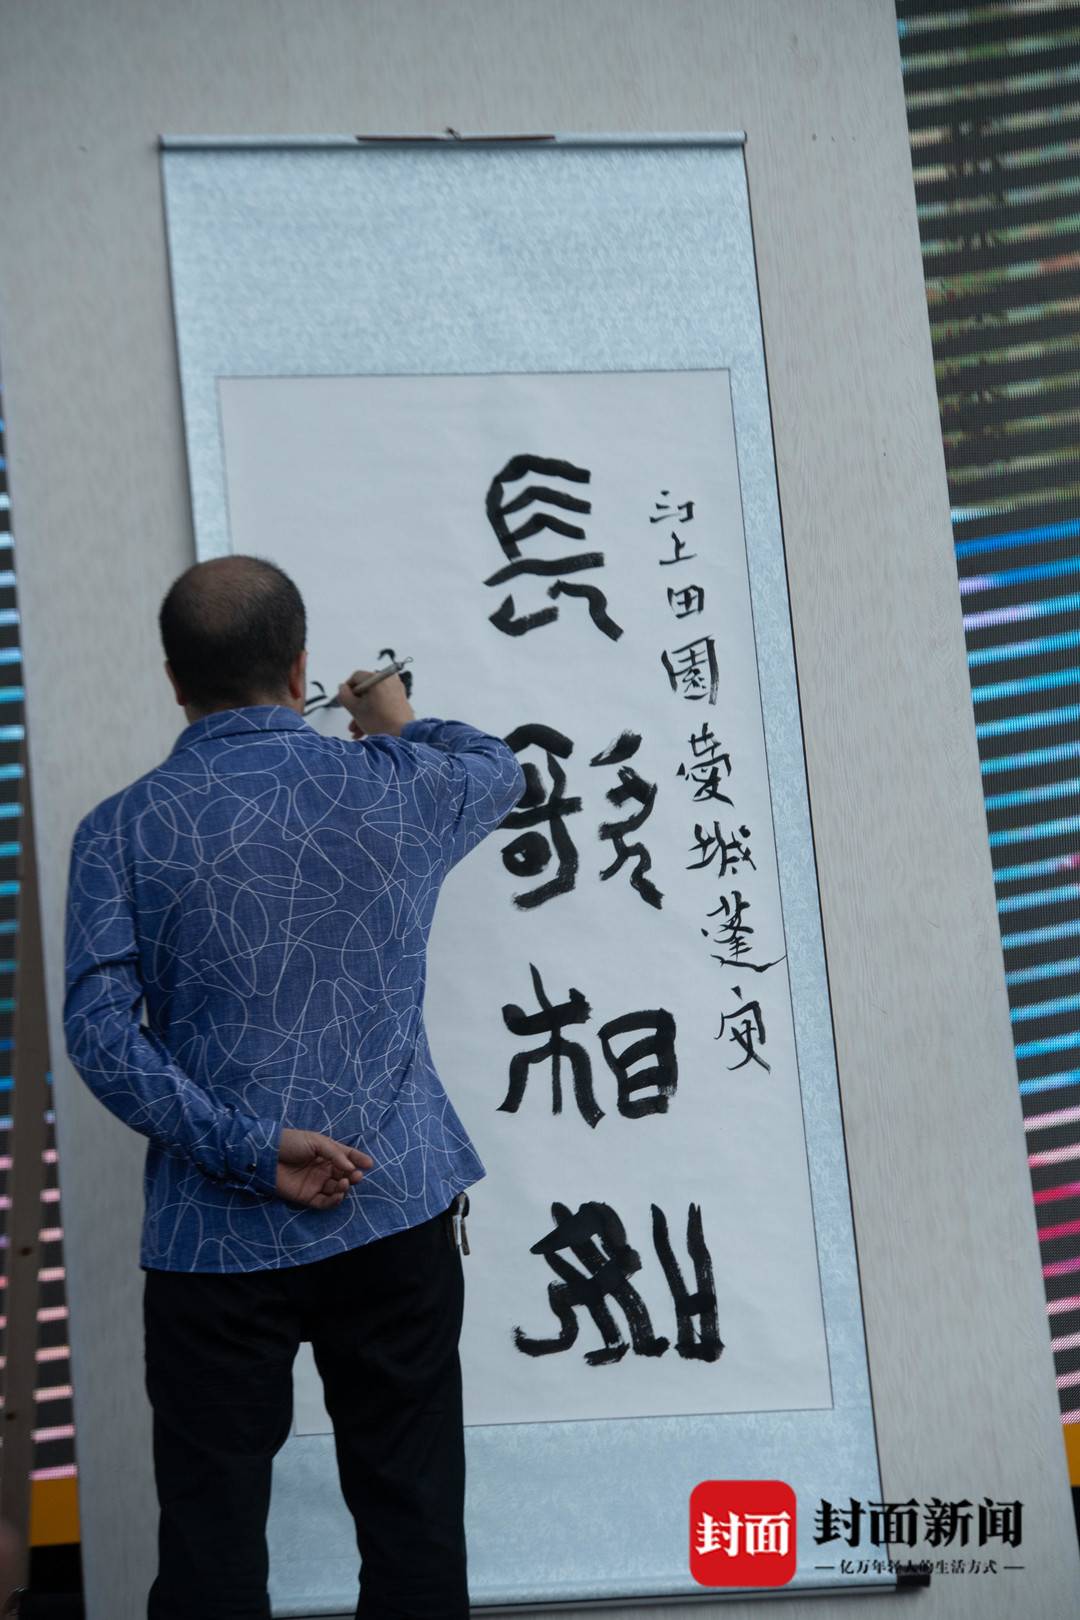 江上田園愛城蓬安
長歌相
封面
封面新闻
亿万年轻人的生活方式